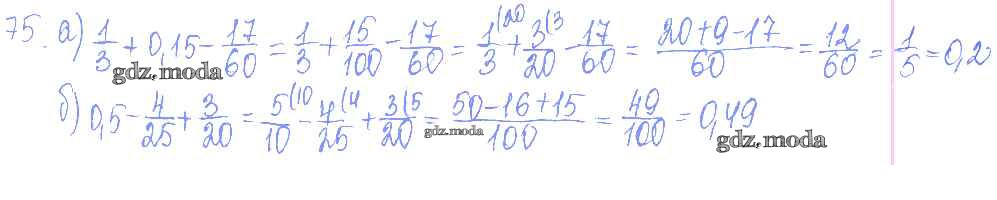 75. а) 1/3 + 0,15 - 17/60 = 1/3 + 15/100 - 17/60 = 1/3(20 + 3/20(3 - 17/60 = (20+9-17)/60 = 12/60 = 1/5 = 0,2
gdz.moda
б) 0,5 - 4/25 + 3/20 = 5/10(10 - 4/25(4 + 3/20(5 = (50-16+15)/100 = 49/100 = 0,49
gdz.moda
gdz.moda